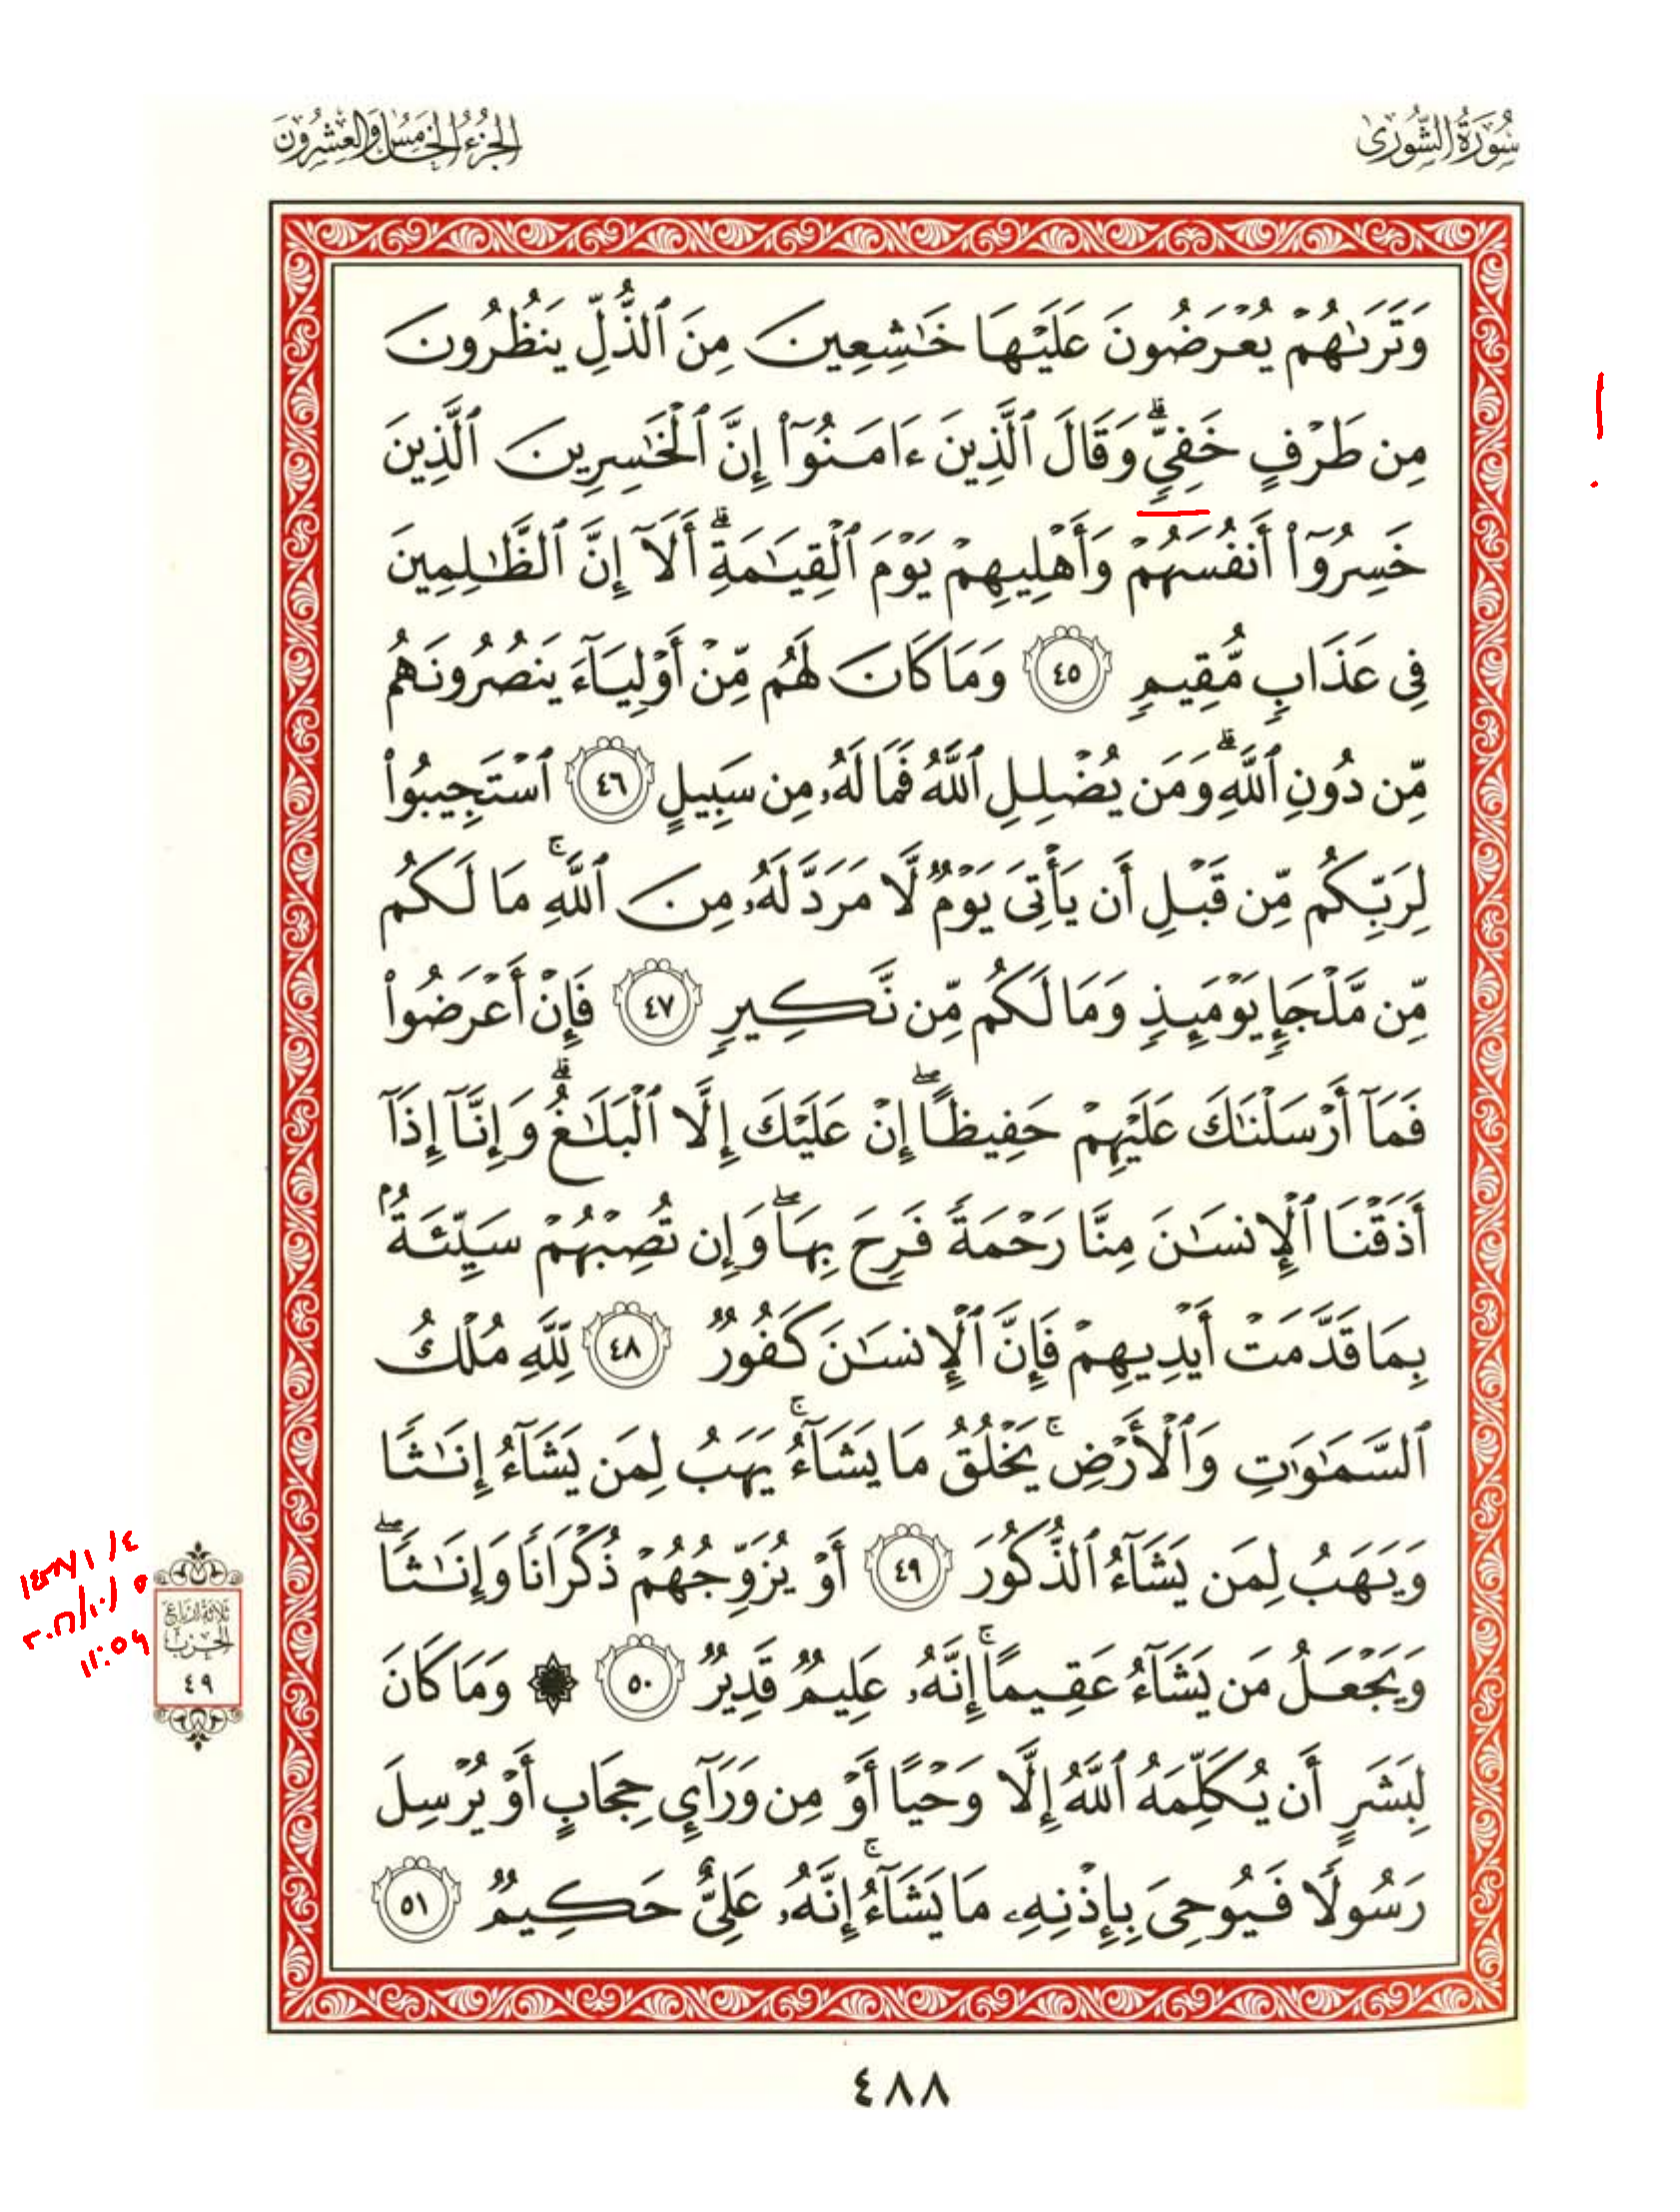 سُورَةُ الشُّورَىٰ
الجُزْءُ الخَامِسُ وَالعِشْرُونَ
وَتَرَىٰهُمْ يُعْرَضُونَ عَلَيْهَا خَٰشِعِينَ مِنَ ٱلذُّلِّ يَنظُرُونَ
مِن طَرْفٍ خَفِيٍّۗ وَقَالَ ٱلَّذِينَ ءَامَنُوٓا۟ إِنَّ ٱلْخَٰسِرِينَ ٱلَّذِينَ
خَسِرُوٓا۟ أَنفُسَهُمْ وَأَهْلِيهِمْ يَوْمَ ٱلْقِيَٰمَةِۗ أَلَآ إِنَّ ٱلظَّٰلِمِينَ
فِى عَذَابٍ مُّقِيمٍ ٤٥ وَمَا كَانَ لَهُم مِّنْ أَوْلِيَآءَ يَنصُرُونَهُم
مِّن دُونِ ٱللَّهِۗ وَمَن يُضْلِلِ ٱللَّهُ فَمَا لَهُۥ مِن سَبِيلٍ ٤٦ ٱسْتَجِيبُوا۟
لِرَبِّكُم مِّن قَبْلِ أَن يَأْتِىَ يَوْمٌ لَّا مَرَدَّ لَهُۥ مِنَ ٱللَّهِۚ مَا لَكُم
مِّن مَّلْجَإٍ يَوْمَئِذٍ وَمَا لَكُم مِّن نَّكِيرٍ ٤٧ فَإِنْ أَعْرَضُوا۟
فَمَآ أَرْسَلْنَٰكَ عَلَيْهِمْ حَفِيظًاۖ إِنْ عَلَيْكَ إِلَّا ٱلْبَلَٰغُۗ وَإِنَّآ إِذَآ
أَذَقْنَا ٱلْإِنسَٰنَ مِنَّا رَحْمَةً فَرِحَ بِهَاۖ وَإِن تُصِبْهُمْ سَيِّئَةٌۢ
بِمَا قَدَّمَتْ أَيْدِيهِمْ فَإِنَّ ٱلْإِنسَٰنَ كَفُورٌ ٤٨ لِّلَّهِ مُلْكُ
ٱلسَّمَٰوَٰتِ وَٱلْأَرْضِۚ يَخْلُقُ مَا يَشَآءُۚ يَهَبُ لِمَن يَشَآءُ إِنَٰثًا
وَيَهَبُ لِمَن يَشَآءُ ٱلذُّكُورَ ٤٩ أَوْ يُزَوِّجُهُمْ ذُكْرَانًا وَإِنَٰثًاۖ
وَيَجْعَلُ مَن يَشَآءُ عَقِيمًاۚ إِنَّهُۥ عَلِيمٌ قَدِيرٌ ٥٠ ۞ وَمَا كَانَ
لِبَشَرٍ أَن يُكَلِّمَهُ ٱللَّهُ إِلَّا وَحْيًا أَوْ مِن وَرَآئِ حِجَابٍ أَوْ يُرْسِلَ
رَسُولًا فَيُوحِىَ بِإِذْنِهِۦ مَا يَشَآءُۚ إِنَّهُۥ عَلِىٌّ حَكِيمٌ ٥١
ثلاثة أرباع
الحزب
٤٩
١١:٥٩
٤٨٨